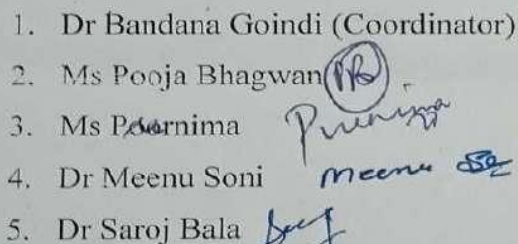 1. Dr Bandana Goindi (Coordinator)
2. Ms Pooja Bhagwan PB
3. Ms Poornima Purnima
4. Dr Meenu Soni Meenu
5. Dr Saroj Bala